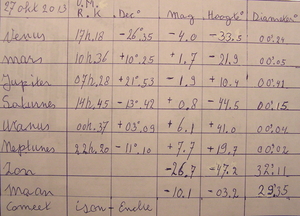 27 okt 2013 U.M. R.K Dec° Mag Hoogte° Diameter°
Venus 17h,18 -26°,35 -4.0 -33,5 00:24
mars 10h,36 +10°,25 +1,7 -21,9 00:05
Jupiter 07h,28 +21°,53 -1,9 +10,4 00:41
Saturnus 14h,45 -13°,42 +0,8 -44,5 00:15
Uranus 00h,37 +03°,09 +6,1 +41,0 00:04
Neptunus 22h,20 -11°,10 +7,7 +19,7 00:02
Zon -26,7 -47,2 32:11
Maan -10,1 -03,2 29:35
Comeet ison - Encke